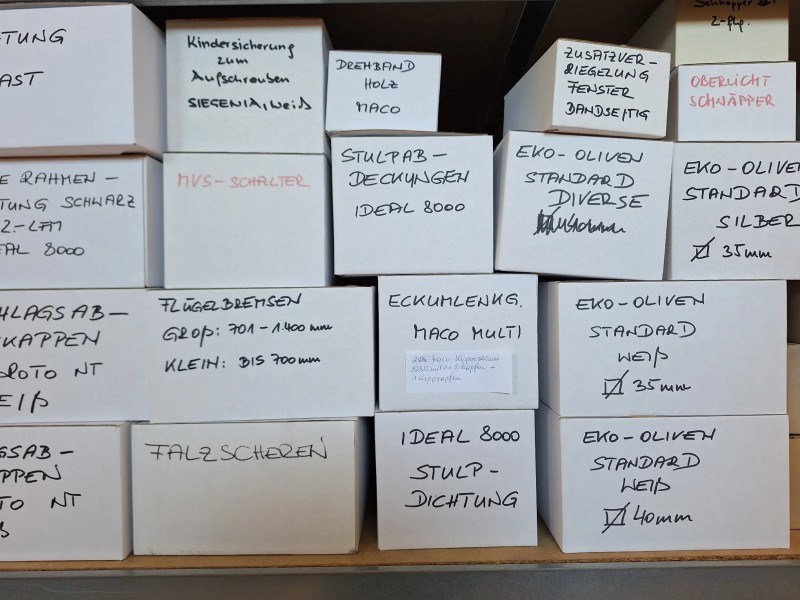 TUNG
AST
Kindersicherung
zum
Aufschrauben
SIEGENIA, weiß
DREHBAND
HOLZ
MACO
ZUSATZVER-
RIEGELUNG
FENSTER
BANDSEITIG
2-flg.
OBERLICHT
SCHNÄPPER
E RAHMEN-
TUNG SCHWARZ
2-LFM
EAL 8000
MVS-SCHALTER
STULPAB-
DECKUNGEN
IDEAL 8000
EKO-OLIVEN
STANDARD
DIVERSE
EKO-OLIVEN
STANDARD
SILBER
35mm
HLAGSAB-
KAPPEN
ROTO NT
EIß
FLÜGELBREMSEN
GROß: 701-1.400 mm
KLEIN: BIS 700mm
ECKUMLENKG.
MACO MULTI
EKO-OLIVEN
STANDARD
WEIß
35mm
GSAB-
PPEN
TO NT
ß
FALZSCHEREN
IDEAL 8000
STULP-
DICHTUNG
EKO-OLIVEN
STANDARD
WEIß
40mm